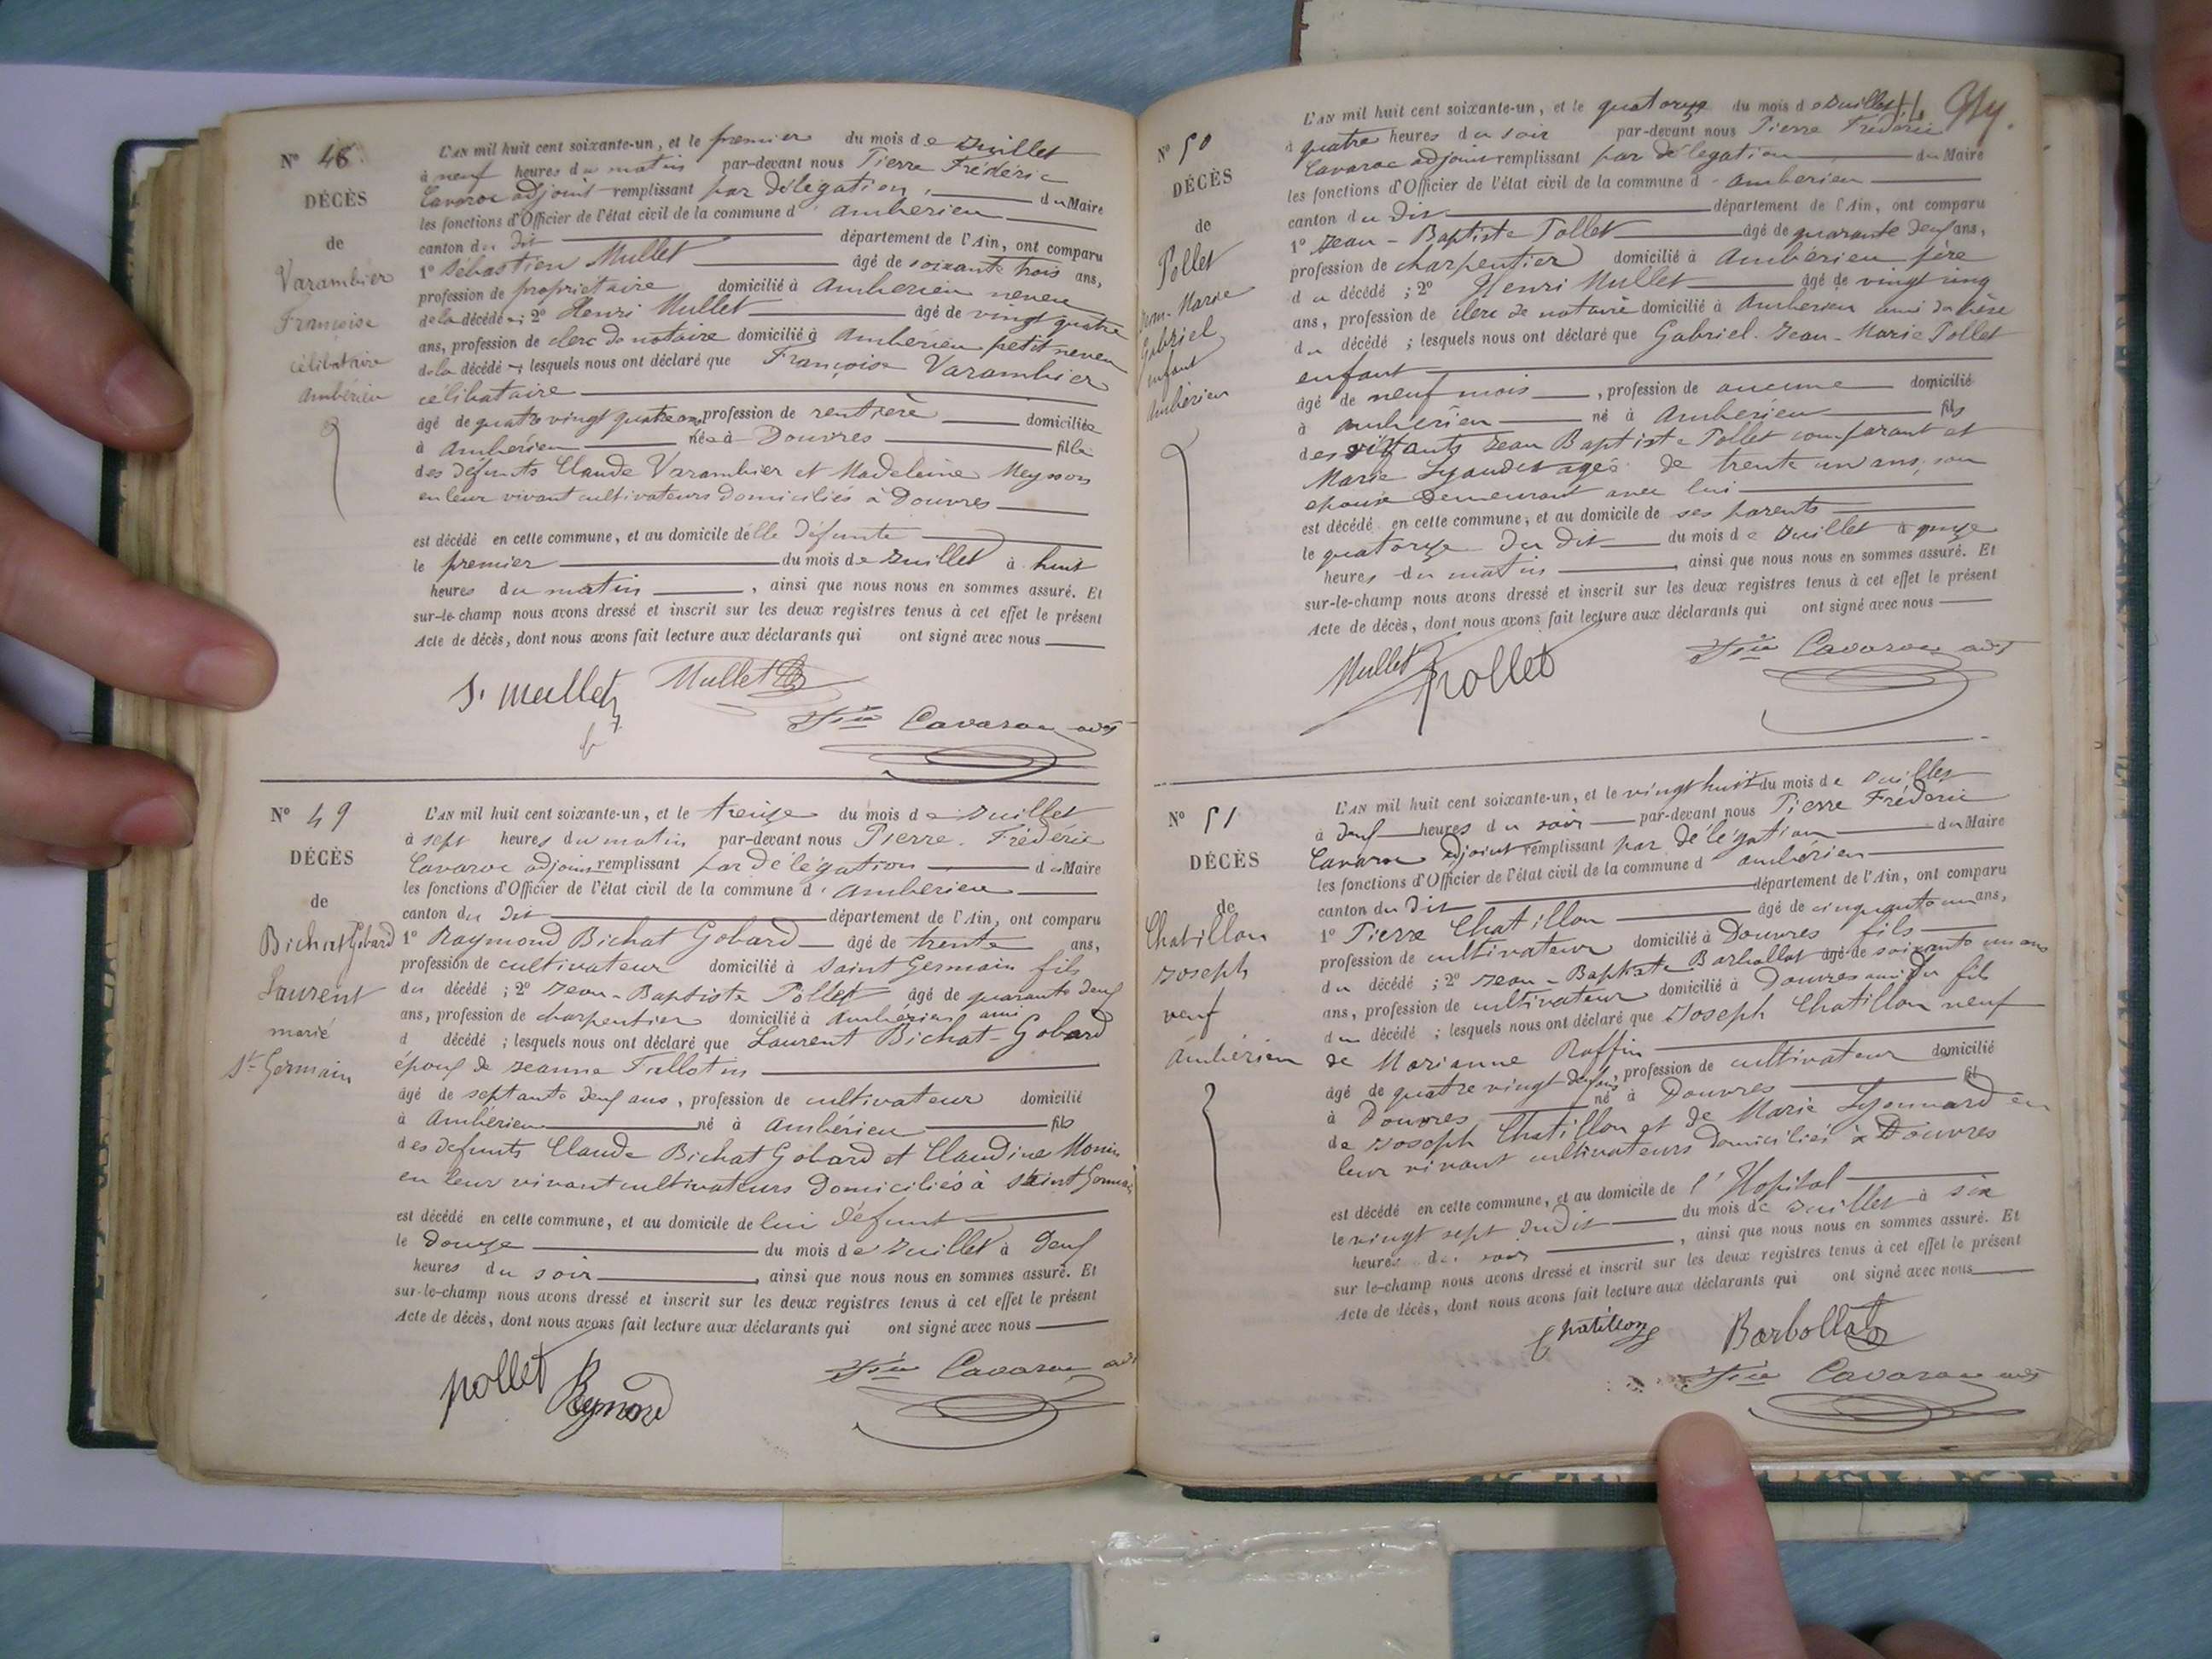 N° 48
DÉCÈS
de
Varambier
Françoise
célibataire
Ambérieu
L'AN mil huit cent soixante-un, et le premier du mois de Juillet
à neuf heures du matin par-devant nous Pierre Frédéric
Cavaroc adjoint remplissant par délégation, du Maire
les fonctions d'Officier de l'état civil de la commune d'Ambérieu
canton du dit département de l'Ain, ont comparu
1° Sébastien Mullet âgé de soixante trois ans,
profession de propriétaire domicilié à Ambérieu neveu
de la décédée; 2° Henri Mullet âgé de vingt quatre
ans, profession de clerc de notaire domicilié à Ambérieu petit neveu
de la décédée; lesquels nous ont déclaré que Françoise Varambier
célibataire
âgé de quatre vingt quatre ans, profession de rentière domiciliée
à Ambérieu née à Douvres fille
des défunts Claude Varambier et Madeleine Meysson
en leur vivant cultivateurs domiciliés à Douvres
est décédé en cette commune, et au domicile d'elle défunte
le premier du mois de Juillet à huit
heures du matin, ainsi que nous nous en sommes assuré. Et
sur-le-champ nous avons dressé et inscrit sur les deux registres tenus à cet effet le présent
Acte de décès, dont nous avons fait lecture aux déclarants qui ont signé avec nous
S. Mullet Mullet
Cavaroc adjt
N° 49
DÉCÈS
de
Bichat Gobard
Laurent
marié
St Germain
L'AN mil huit cent soixante-un, et le treize du mois de Juillet
à sept heures du matin par-devant nous Pierre Frédéric
Cavaroc adjoint remplissant par délégation du Maire
les fonctions d'Officier de l'état civil de la commune d'Ambérieu
canton du dit département de l'Ain, ont comparu
1° Raymond Bichat Gobard âgé de trente ans,
profession de cultivateur domicilié à Saint Germain fils
du décédé; 2° Jean-Baptiste Pollet âgé de quarante deux
ans, profession de charpentier domicilié à Ambérieu ami
d décédé; lesquels nous ont déclaré que Laurent Bichat-Gobard
époux de Jeanne Tallotin
âgé de septante deux ans, profession de cultivateur domicilié
à Ambérieu né à Ambérieu fils
des défunts Claude Bichat Gobard et Claudine Monin
en leur vivant cultivateurs domiciliés à Saint Germain
est décédé en cette commune, et au domicile de lui défunt
le douze du mois de Juillet à deux
heures du soir, ainsi que nous nous en sommes assuré. Et
sur-le-champ nous avons dressé et inscrit sur les deux registres tenus à cet effet le présent
Acte de décès, dont nous avons fait lecture aux déclarants qui ont signé avec nous
pollet Reymond
Cavaroc adjt
N° 50
DÉCÈS
de
Pollet
Jean-Marie
Gabriel
enfant
Ambérieu
L'AN mil huit cent soixante-un, et le quatorze du mois de Juillet
à quatre heures du soir par-devant nous Pierre Frédéric
Cavaroc adjoint remplissant par délégation du Maire
les fonctions d'Officier de l'état civil de la commune d'Ambérieu
canton du dit département de l'Ain, ont comparu
1° Jean-Baptiste Pollet âgé de quarante deux ans,
profession de charpentier domicilié à Ambérieu père
du décédé; 2° Henri Mullet âgé de vingt cinq
ans, profession de clerc de notaire domicilié à Ambérieu ami du père
du décédé; lesquels nous ont déclaré que Gabriel Jean-Marie Pollet
enfant
âgé de neuf mois, profession de aucune domicilié
à Ambérieu né à Ambérieu fils
des vivants Jean Baptiste Pollet comparant et
Marie âgés de trente un ans, son
épouse demeurant avec lui
est décédé en cette commune, et au domicile de ses parents
le quatorze du dit du mois de Juillet à onze
heures du matin, ainsi que nous nous en sommes assuré. Et
sur-le-champ nous avons dressé et inscrit sur les deux registres tenus à cet effet le présent
Acte de décès, dont nous avons fait lecture aux déclarants qui ont signé avec nous
Mullet pollet Cavaroc adjt
N° 51
DÉCÈS
de
Chatillon
Joseph
veuf
Ambérieu
L'AN mil huit cent soixante-un, et le vingt huit du mois de Juillet
à deux heures du soir par-devant nous Pierre Frédéric
Cavaroc adjoint remplissant par délégation du Maire
les fonctions d'Officier de l'état civil de la commune d'Ambérieu
canton du dit département de l'Ain, ont comparu
1° Pierre Chatillon âgé de cinquante un ans,
profession de cultivateur domicilié à Douvres fils
du décédé; 2° Jean-Baptiste Barbollat âgé de soixante un ans
ans, profession de cultivateur domicilié à Douvres ami du fils
du décédé; lesquels nous ont déclaré que Joseph Chatillon veuf
de Marianne Ruffin
âgé de quatre vingt deux ans, profession de cultivateur domicilié
à Douvres né à Douvres fils
de Joseph Chatillon et de Marie Lyonnard en
leur vivant cultivateurs domiciliés à Douvres
est décédé en cette commune, et au domicile de l'Hopital
le vingt sept du dit du mois de Juillet à six
heures du soir, ainsi que nous nous en sommes assuré. Et
sur le-champ nous avons dressé et inscrit sur les deux registres tenus à cet effet le présent
Acte de décès, dont nous avons fait lecture aux déclarants qui ont signé avec nous
Chatillon Barbollat
Cavaroc adjt